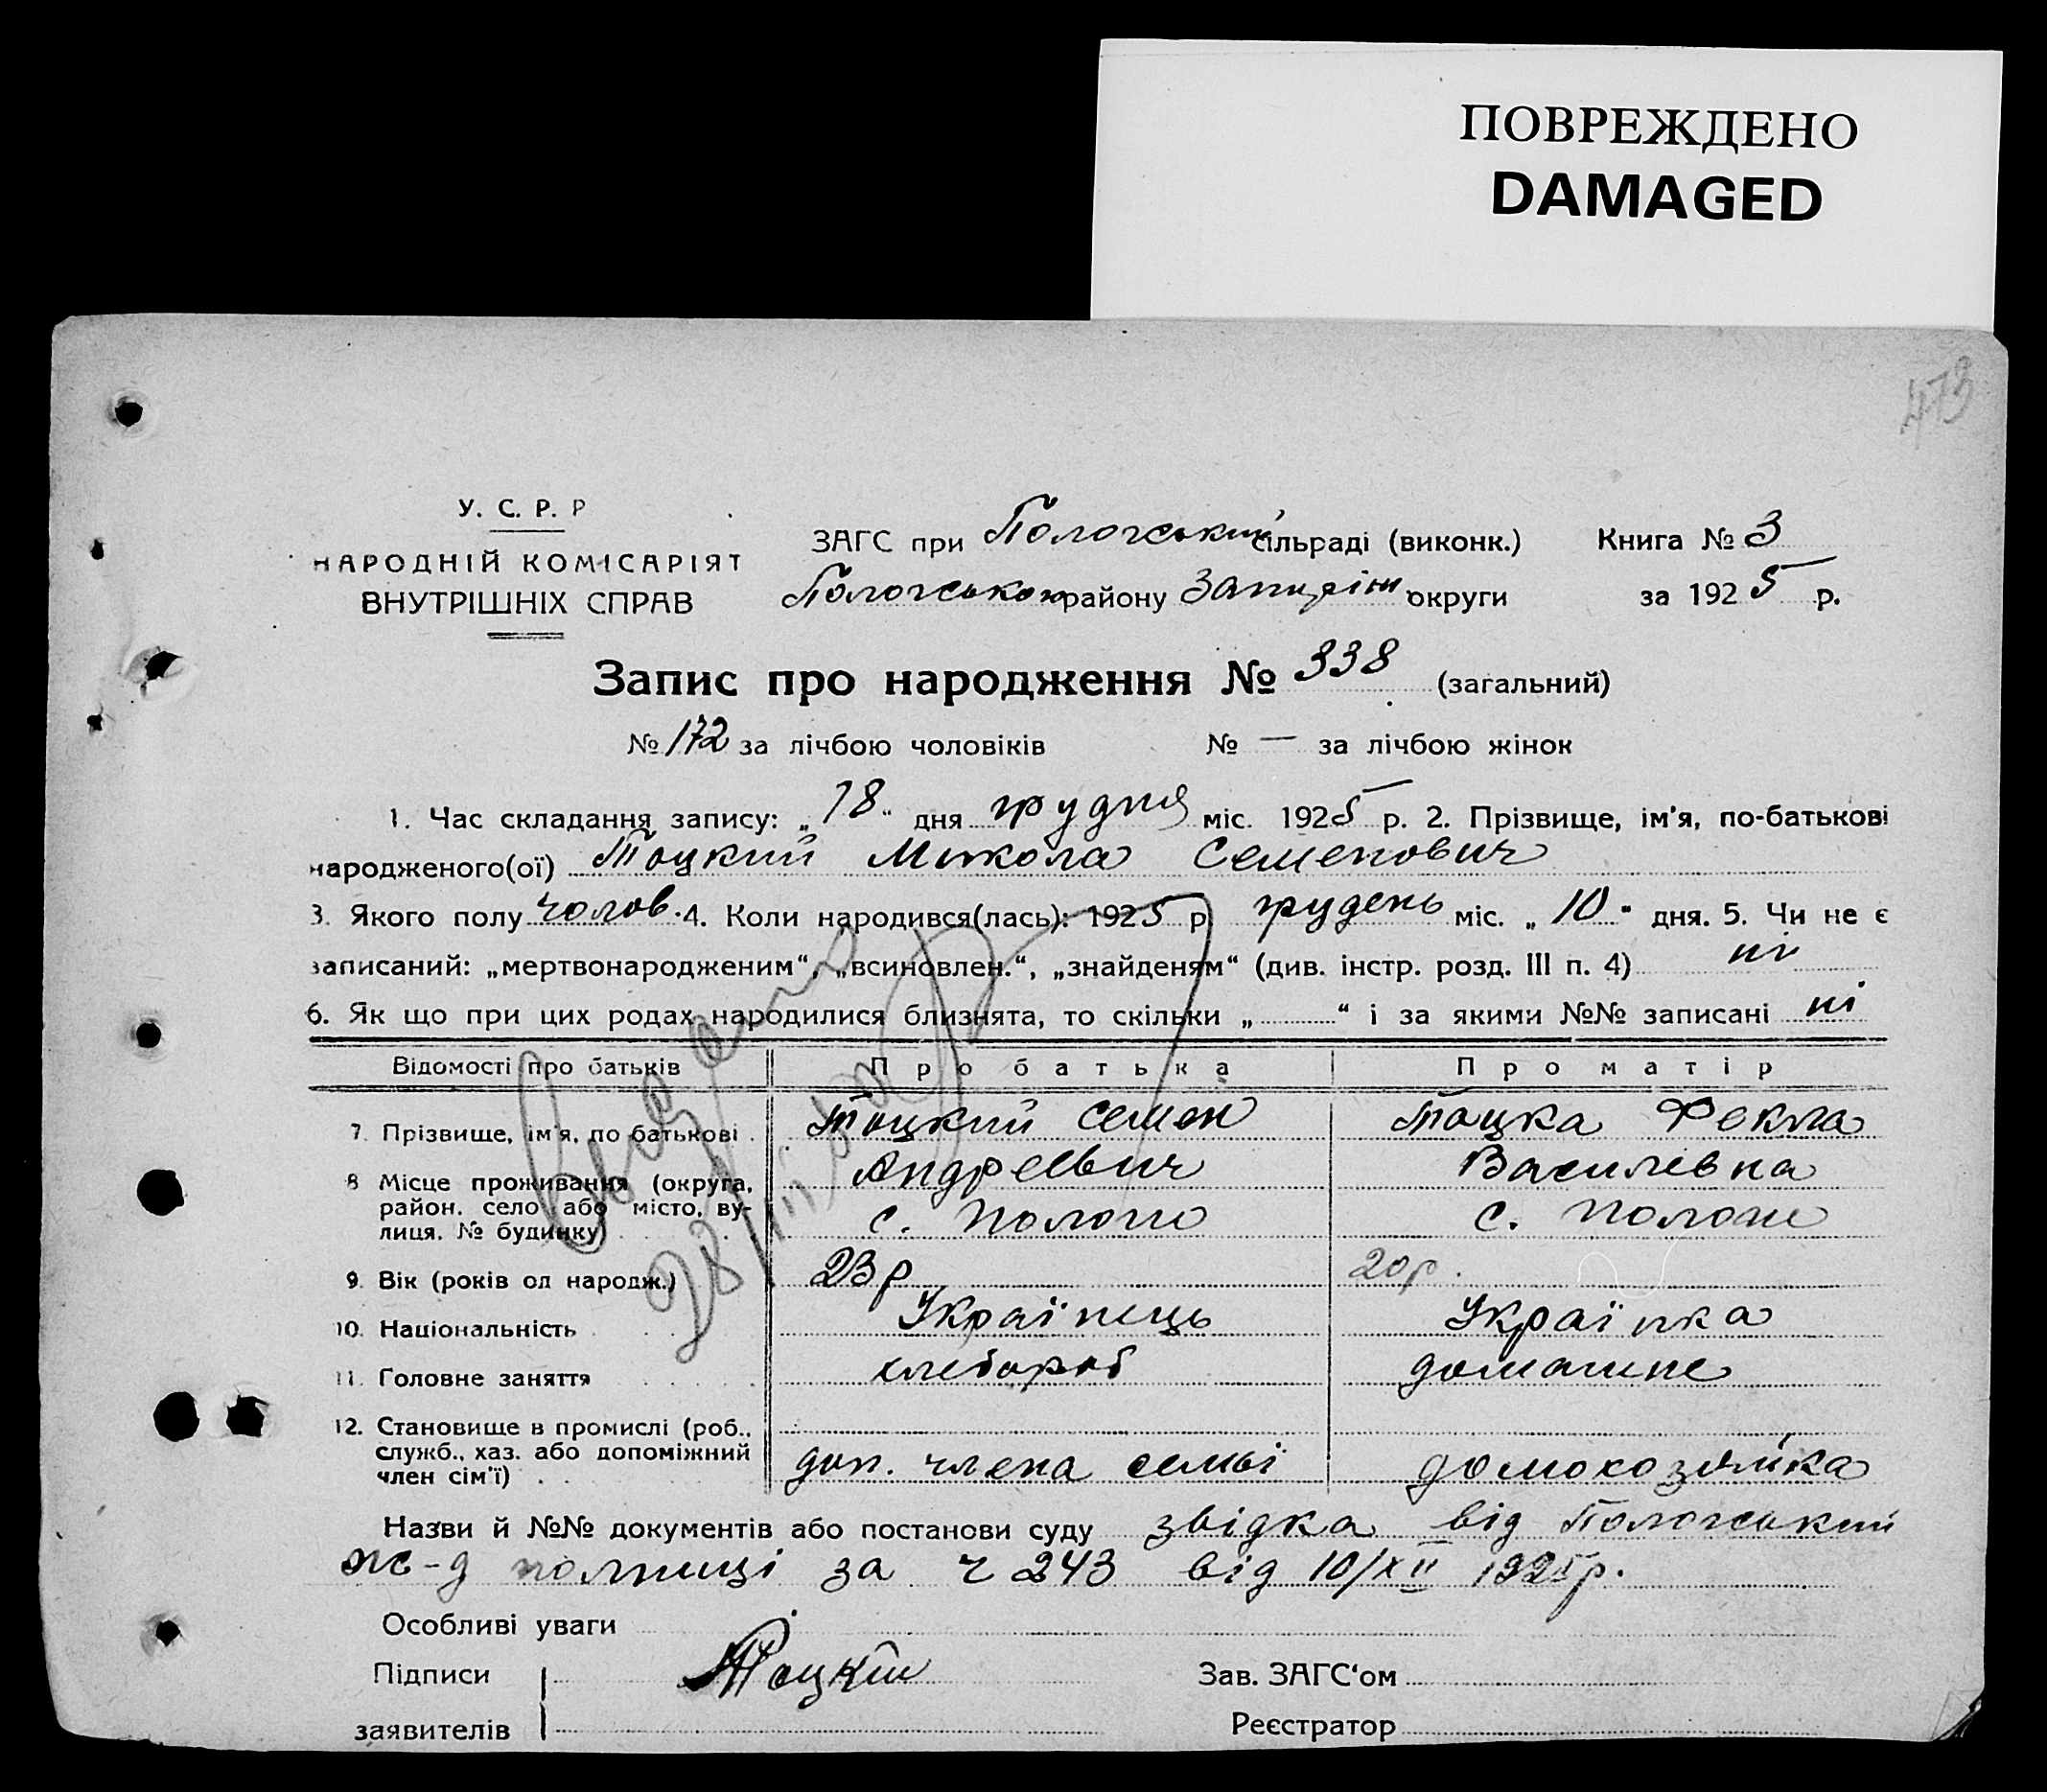 ПОВРЕЖДЕНО
DAMAGED
473
У. С. Р. Р
НАРОДНІЙ КОМІСАРІЯТ
ВНУТРІШНІХ СПРАВ
ЗАГС при Пологський сільраді (виконк.)
Пологського району Запоріж округи
Книга № 3
за 1925 р.
Запис про народження № 338 (загальний)
№ 172 за лічбою чоловіків № — за лічбою жінок
1. Час складання запису: „18" дня грудня міс. 1925 р. 2. Прізвище, ім'я, по-батькові
народженого(ої) Тоцкий Микола Семенович
3. Якого полу чолов. 4. Коли народився(лась): 1925 р. грудень міс. „10" дня. 5. Чи не є
записаний: „мертвонародженим", „всиновлен.", „знайденям" (див. інстр. розд. III п. 4) ні
6. Як що при цих родах народилися близнята, то скільки „ " і за якими №№ записані ні
Відомості про батьків Про батька Про матір
7. Прізвище, ім'я, по батькові . Тоцкий Семен Тоцка Фекла
Андреевич Василевна
8 Місце проживання (округа, район. село або місто, вулиця. № будинку) с. Пологи с. Пологи
9. Вік (років од народж.) 23 р 20 р.
10. Національність Українець Українка
11. Головне заняття хлебороб домашнє
12. Становище в промислі (роб., служб., хаз. або допоміжний член сім'ї) доп. члена семьі домохозяйка
Назви й №№ документів або постанови суду звідка від Пологський
ж-д за ч 243 від 10/XII 1925р.
Особливі уваги
Підписи Тоцкий Зав. ЗАГС'ом
заявителів Реєстратор